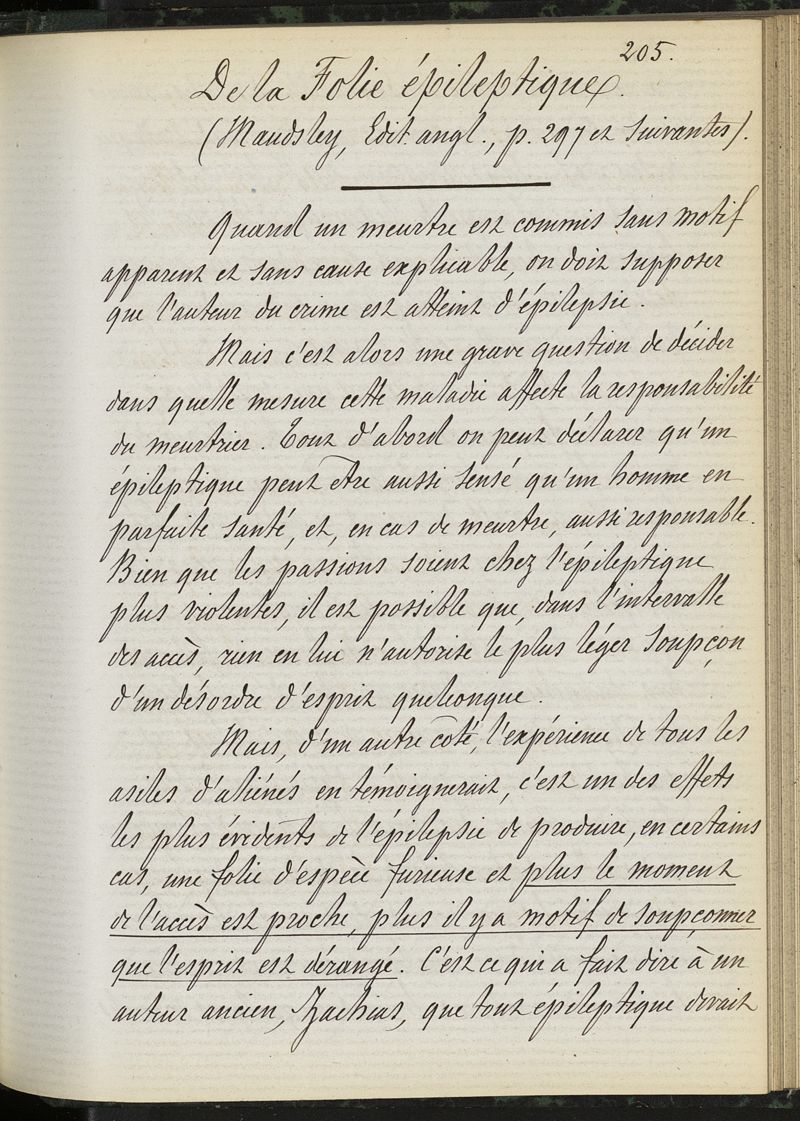 205.
De la Folie épileptique.
(Maudsley, Edit. angl., p. 297 et suivantes).
Quand un meurtre est commis sans motif
apparent et sans cause explicable, on doit supposer
que l'auteur du crime est atteint d'épilepsie.
Mais c'est alors une grave question de décider
dans quelle mesure cette maladie affecte la responsabilité
du meurtrier. Tout d'abord on peut déclarer qu'un
épileptique peut être aussi sensé qu'un homme en
parfaite santé, et, en cas de meurtre, aussi responsable.
Bien que les passions soient chez l'épileptique
plus violentes, il est possible que, dans l'intervalle
des accès, rien en lui n'autorise le plus léger soupçon
d'un désordre d'esprit quelconque.
Mais, d'un autre côté, l'expérience de tous les
asiles d'aliénés en témoignerait, c'est un des effets
les plus évidents de l'épilepsie de produire, en certains
cas, une folie d'espèce furieuse et plus le moment
de l'accès est proche, plus il y a motif de soupçonner
que l'esprit est dérangé. C'est ce qui a fait dire à un
auteur ancien, Zachias, que tout épileptique devait